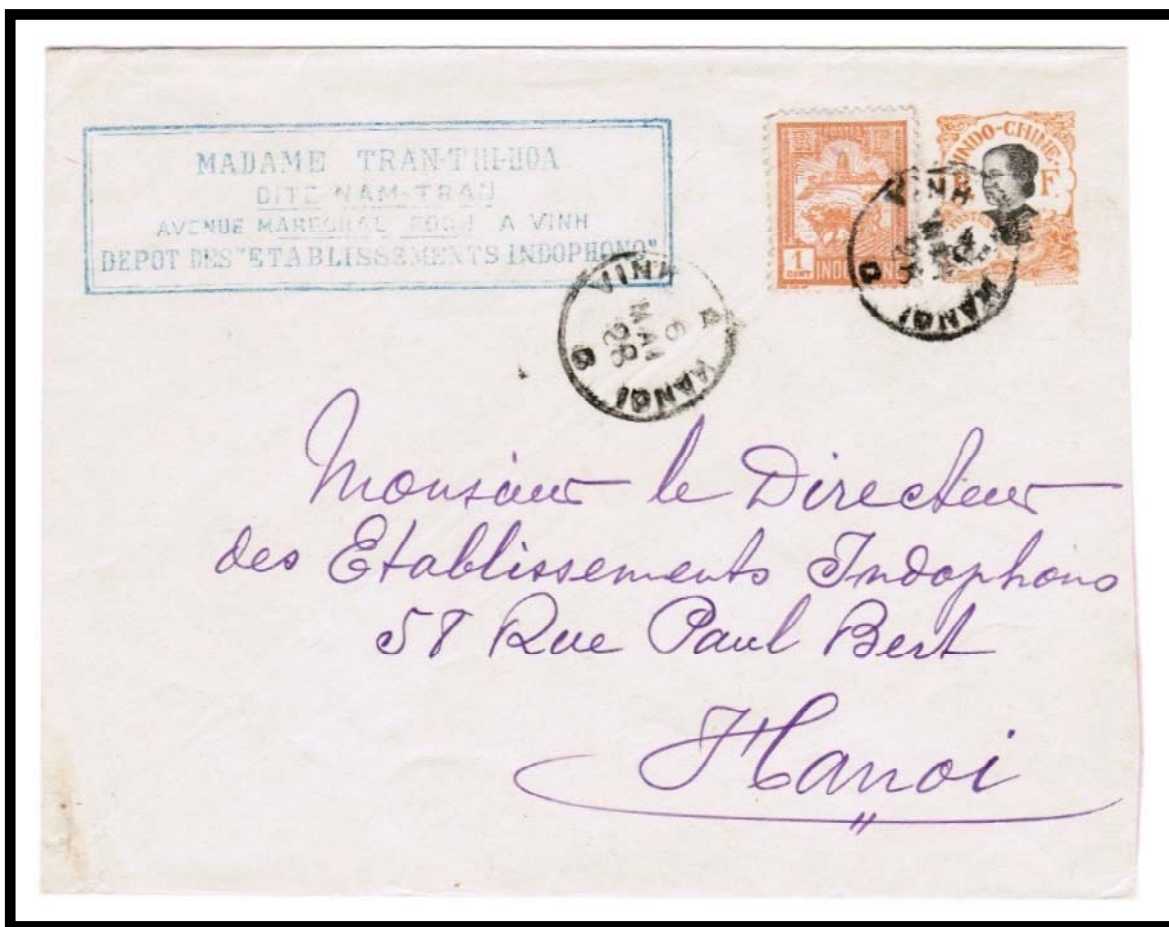 MADAME TRAN-THI-HOA
DITE NAM-TRAN
AVENUE MARECHAL FOCH A VINH
DEPOT DES "ETABLISSEMENTS INDOPHONO"
POSTES
1
CENT
INDO
INDO-CHINE
F.
VINH A HANOI
6
MAI
28
VINH
HANOI
Monsieur le Directeur
des Etablissements Indophono
58 Rue Paul Bert
Hanoi